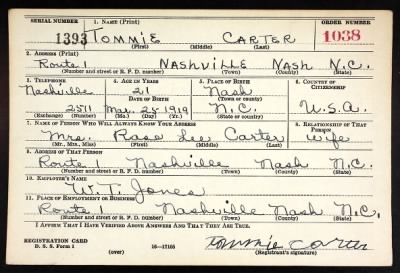 SERIAL NUMBER 1. NAME (Print) ORDER NUMBER
1393 TOMMIE CARTER 1038
(First) (Middle) (Last)
2. ADDRESS (Print)
Route 1 NASHVILLE NASH N.C.
(Number and street or R. F. D. number) (Town) (County) (State)
3. TELEPHONE 4. AGE IN YEARS 5. PLACE OF BIRTH 6. COUNTRY OF CITIZENSHIP
Nashville 21 Nash
DATE OF BIRTH (Town or county)
2511 Mar. 25 1919 N.C. U.S.A.
(Exchange) (Number) (Mo.) (Day) (Yr.) (State or country)
7. NAME OF PERSON WHO WILL ALWAYS KNOW YOUR ADDRESS 8. RELATIONSHIP OF THAT PERSON
Mrs. Rosa Lee Carter Wife
(Mr., Mrs., Miss) (First) (Middle) (Last)
9. ADDRESS OF THAT PERSON
Route 1 Nashville Nash N.C.
(Number and street or R. F. D. number) (Town) (County) (State)
10. EMPLOYER'S NAME
W.T. Jones
11. PLACE OF EMPLOYMENT OR BUSINESS
Route 1 Nashville Nash N.C.
(Number and street or R. F. D. number) (Town) (County) (State)
I AFFIRM THAT I HAVE VERIFIED ABOVE ANSWERS AND THAT THEY ARE TRUE.
REGISTRATION CARD
D. S. S. Form 1 16—17105 Tommie Carter
(over) (Registrant's signature)